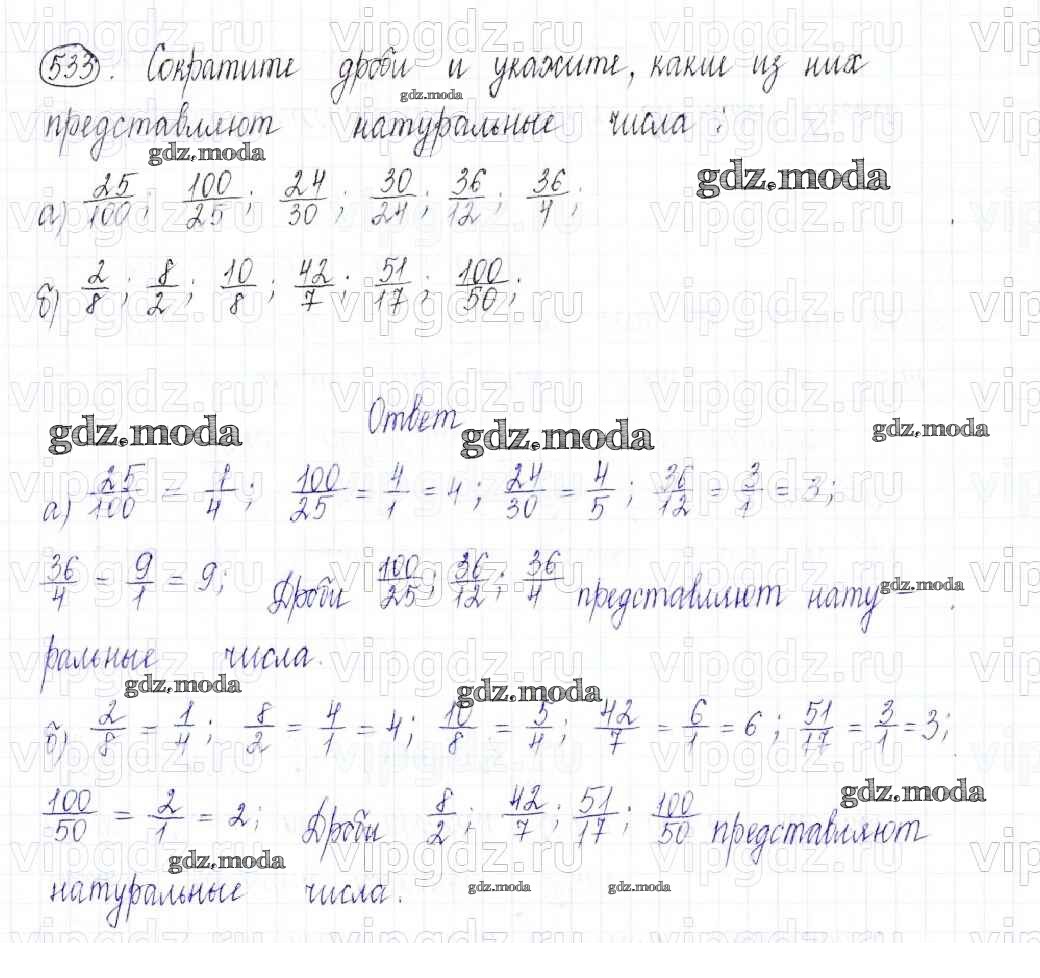 533. Сократите дроби и укажите, какие из них
представляют натуральные числа:
а) 25/100; 100/25; 24/30; 30/24; 36/12; 36/4;
б) 2/8; 8/2; 10/8; 42/7; 51/17; 100/50;
Ответ
а) 25/100 = 1/4; 100/25 = 4/1 = 4; 24/30 = 4/5; 36/12 = 3/1 = 3;
36/4 = 9/1 = 9; Дроби 100/25; 36/12; 36/4 представляют нату-
ральные числа.
б) 2/8 = 1/4; 8/2 = 4/1 = 4; 10/8 = 5/4; 42/7 = 6/1 = 6; 51/17 = 3/1 = 3;
100/50 = 2/1 = 2; Дроби 8/2; 42/7; 51/17; 100/50 представляют
натуральные числа.
gdz.moda
vipgdz.ru